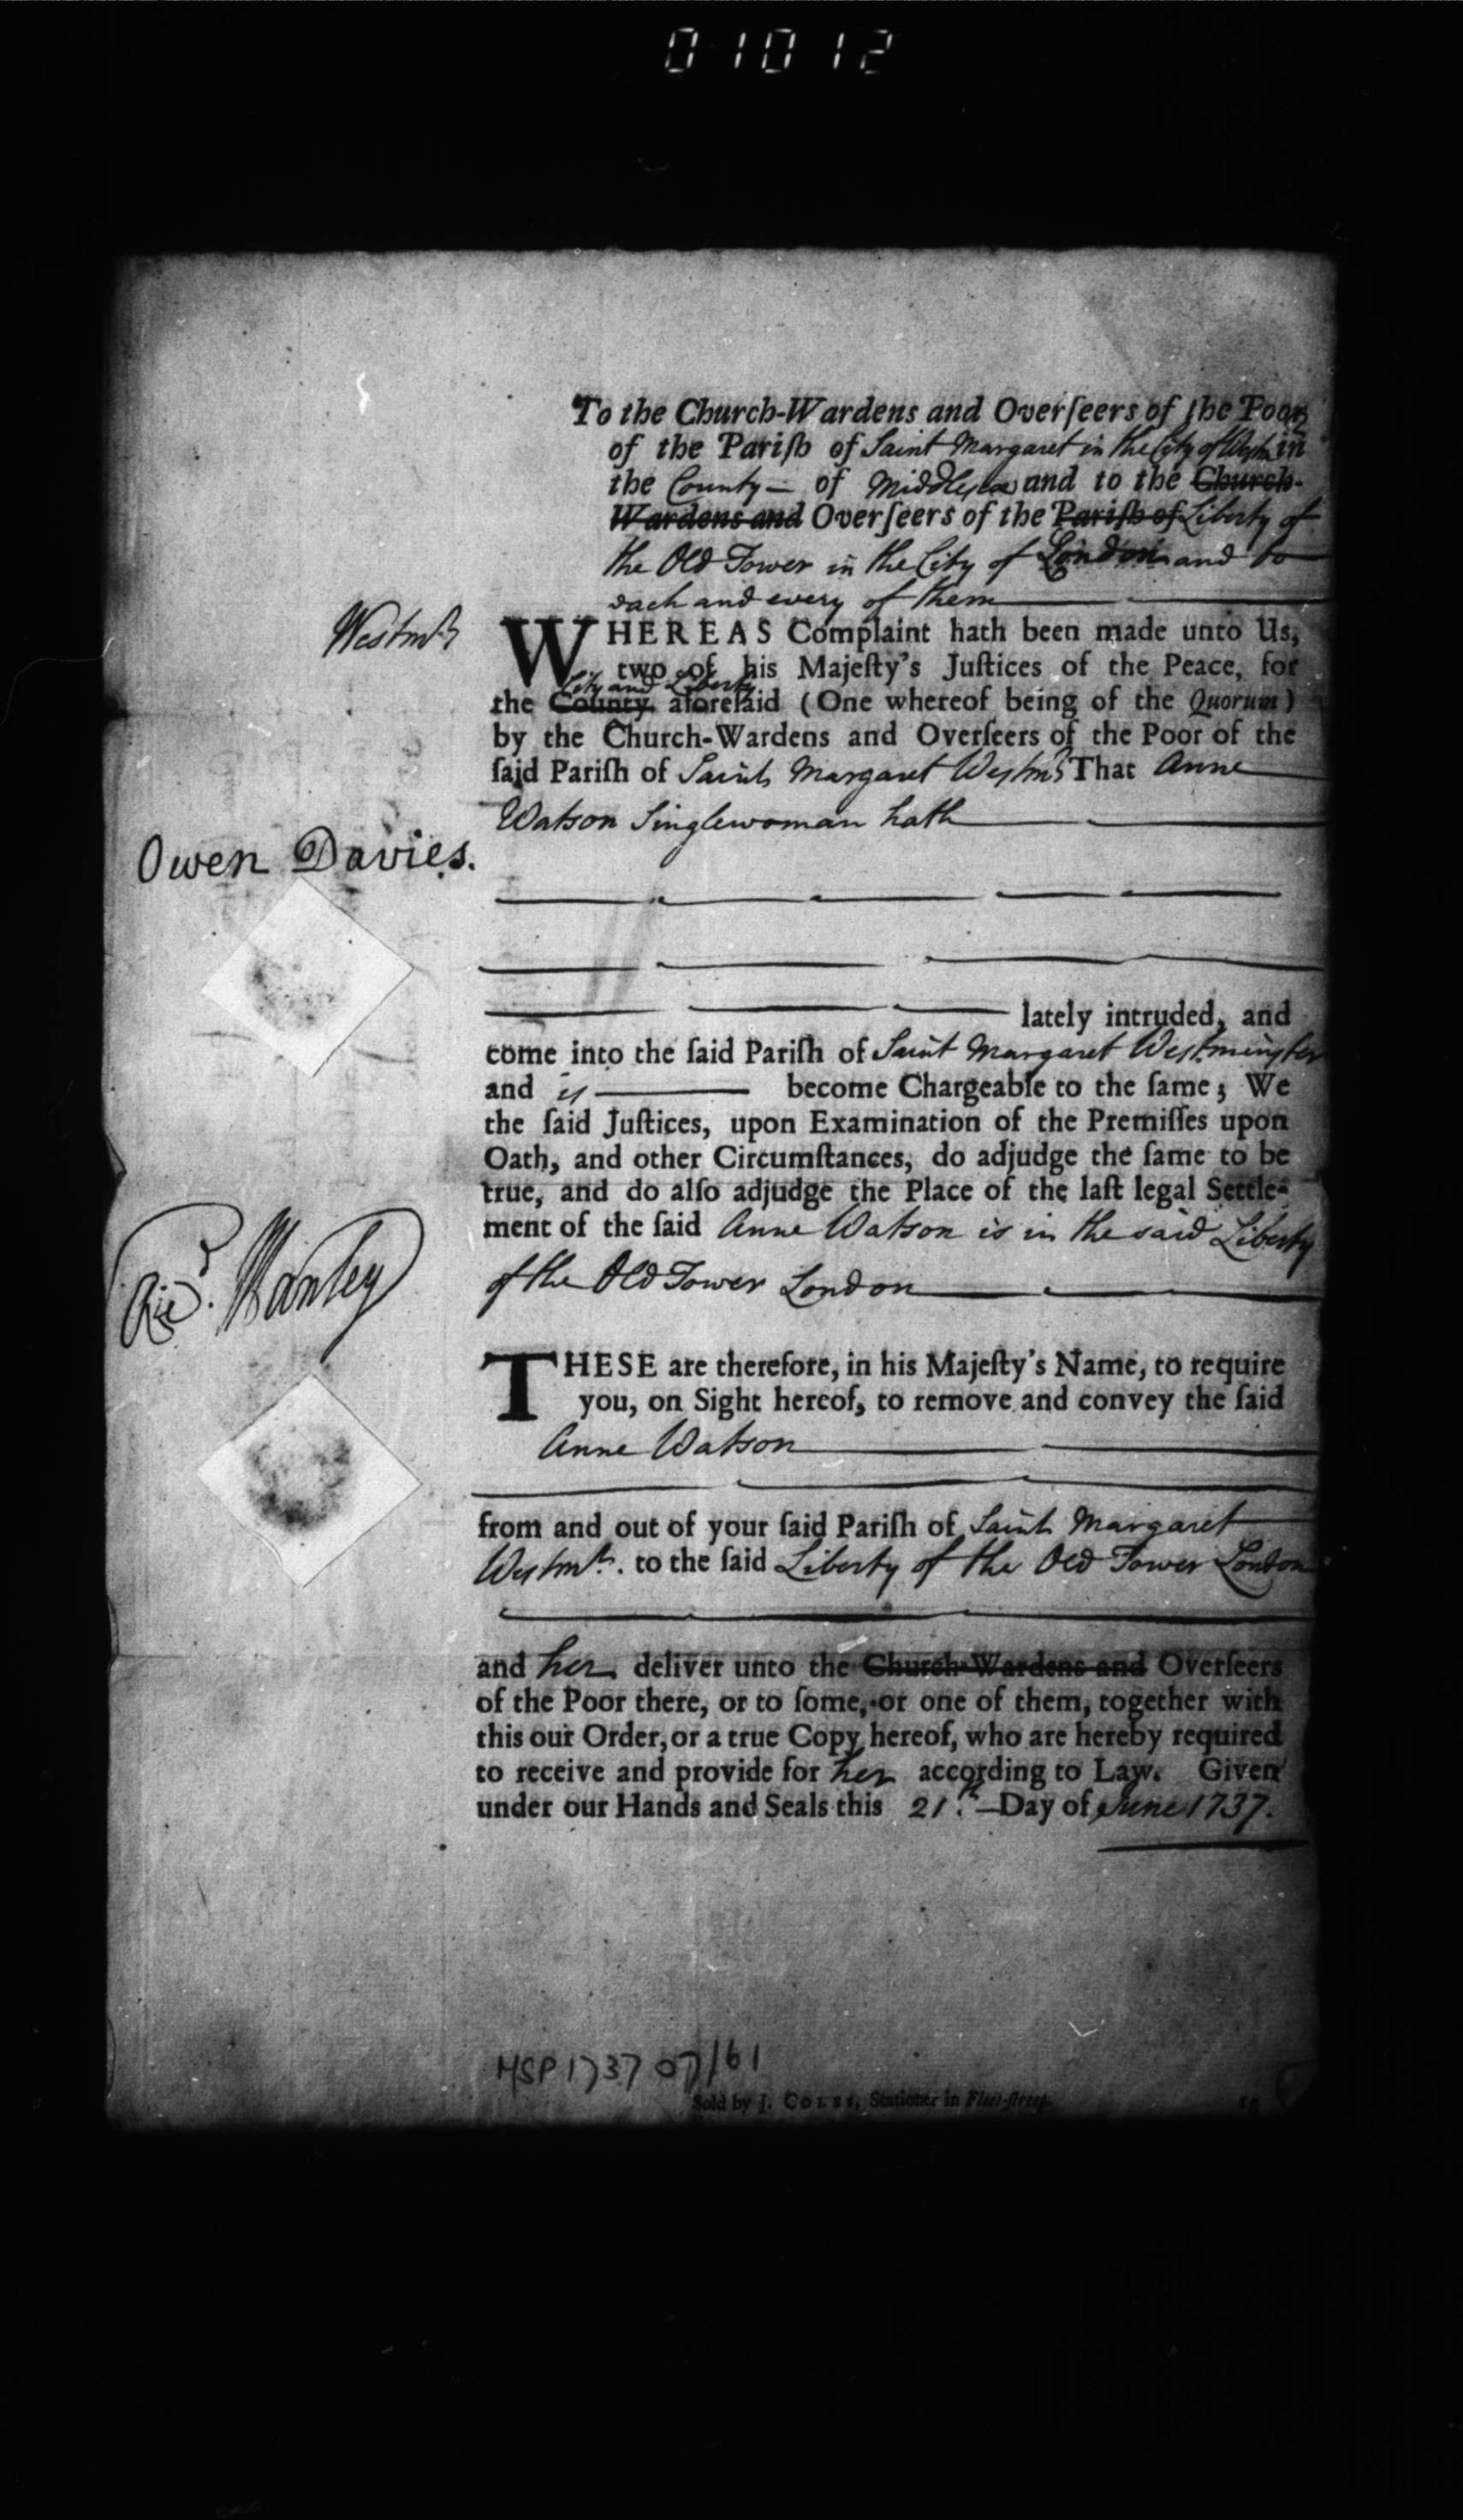 01012
To the Church-Wardens and Overſeers of the Poor
of the Pariſh of Saint Margaret in the City of Westm in
the County — of Middlesex and to the Church-
Wardens and Overſeers of the Pariſh of Liberty of
the Old Tower in the City of London and to
each and every of them
Westmr
WHEREAS Complaint hath been made unto Us,
two of his Majeſty's Juſtices of the Peace, for
City and Liberty
the County aforeſaid (One whereof being of the Quorum)
by the Church-Wardens and Overſeers of the Poor of the
ſaid Pariſh of Saint Margaret Westmr That Anne
Watson Singlewoman hath
Owen Davies.
lately intruded, and
come into the ſaid Pariſh of Saint Margaret Westminster
and is become Chargeable to the ſame; We
the ſaid Juſtices, upon Examination of the Premiſſes upon
Oath, and other Circumſtances, do adjudge the ſame to be
true, and do alſo adjudge the Place of the laſt legal Settle-
ment of the ſaid Anne Watson is in the said Liberty
of the Old Tower London
Ricd. Manley
THESE are therefore, in his Majeſty's Name, to require
you, on Sight hereof, to remove and convey the ſaid
Anne Watson
from and out of your ſaid Pariſh of Saint Margaret
Westmr. to the ſaid Liberty of the Old Tower London
and her deliver unto the Church-Wardens and Overſeers
of the Poor there, or to ſome, or one of them, together with
this our Order, or a true Copy hereof, who are hereby required
to receive and provide for her according to Law. Given
under our Hands and Seals this 21.th — Day of June 1737.
MSP 1737 07/61
Sold by J. COLES, Stationer in Fleet-ſtreet